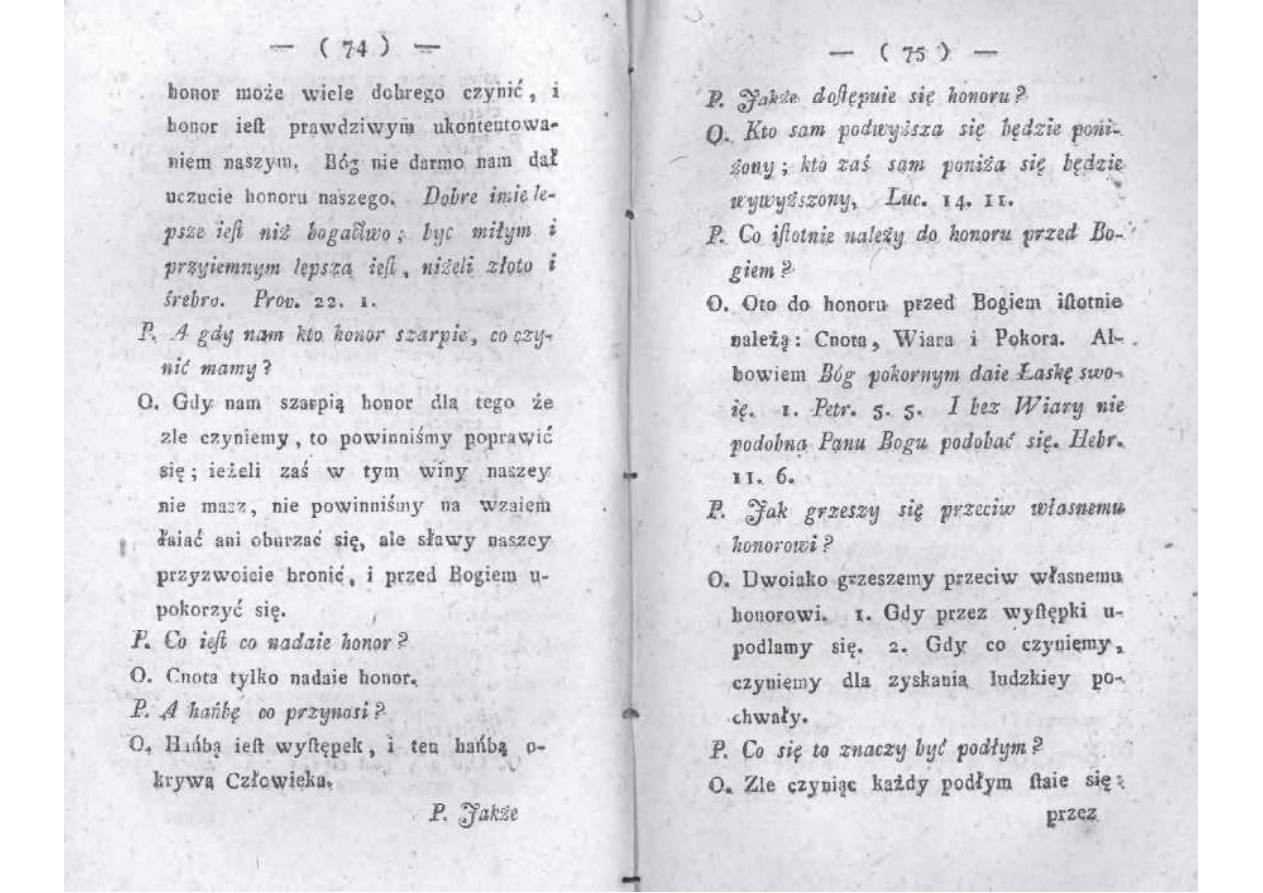 — ( 74 ) —
honor może wiele dobrego czynić, i
honor ieſt prawdziwym ukontentowa-
niem naszym. Bóg nie darmo nam dał
uczucie honoru naszego. Dobre imie le-
psze ieſt niż bogactwo; byc miłym i
przyiemnym lepsza ieſt, niżeli złoto i
śrebro. Prov. 22. 1.
P. A gdy nam kto honor szarpie, co czy-
nić mamy?
O. Gdy nam szarpią honor dla tego że
zle czyniemy, to powinniśmy poprawić
się; ieżeli zaś w tym winy naszey
nie masz, nie powinniśmy na wzaiem
łaiać ani oburzać się, ale sławy naszey
przyzwoicie bronić, i przed Bogiem u-
pokorzyć się.
P. Co ieſt co nadaie honor?
O. Cnota tylko nadaie honor.
P. A hańbę co przynosi?
O. Hańbą ieſt wyſtępek, i ten hańbą o-
krywa Człowieka.
P. Jakże
— ( 75 ) —
P. Jakże doſtępuie się honoru?
O. Kto sam podwyższa się będzie poni-
żony; kto zaś sam poniża się będzie
wywyższony, Luc. 14. 11.
P. Co iſtotnie należy do honoru przed Bo-
giem?
O. Oto do honoru przed Bogiem iſtotnie
należą: Cnota, Wiara i Pokora. Al-
bowiem Bóg pokornym daie Łaskę swo-
ię. 1. Petr. 5. 5. I bez Wiary nie
podobna Panu Bogu podobać się. Hebr.
11. 6.
P. Jak grzeszy się przeciw własnemu
honorowi?
O. Dwoiako grzeszemy przeciw własnemu
honorowi. 1. Gdy przez wyſtępki u-
podlamy się. 2. Gdy co czyniemy,
czyniemy dla zyskania ludzkiey po-
chwały.
P. Co się to znaczy być podłym?
O. Zle czyniąc każdy podłym ſtaie się:
przez